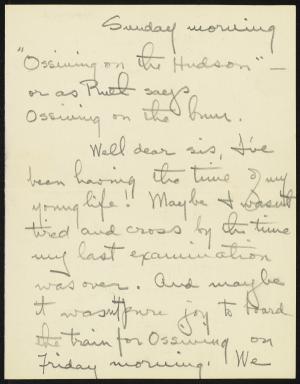 Sunday morning
"Ossining on the Hudson" —
or as Ruth says
Ossining on the bum.
Well dear sis, I've
been having the time of my
young life! Maybe I wasn't
tired and cross by the time
my last examination
was over. And maybe
it wasn't pure joy to board
the train for Ossining on
Friday morning. We